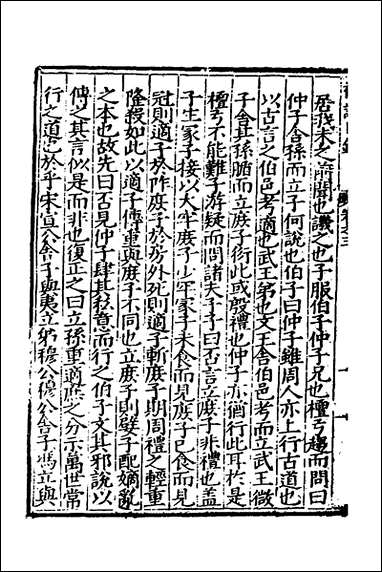 居我未之前聞也譏之也子服伯子仲子兄也檀弓趨而問曰
仲子舍孫而立子何說也伯子曰仲子雖周人亦上行古道也
以古言之伯邑考適也武王弟也文王舍伯邑考而立武王微
子舍其孫腯而立庶子衍此或殷禮也仲子亦猶行此耳於是
檀弓不能難子游疑而問諸夫子子曰否言立庶子非禮也蓋
子生冢子接以大牢庶子少牢冢子未食而見庶子已食而見
冠則適子於阼庶子於房外死則適子斬庶子期周禮之輕重
隆殺如此以適子傳重與庶子不同也立庶子則孽子配嫡亂
之本也故夫子曰否見仲子肆其私意而行之伯子文其邪說以
傳之其言似是而非也復正之曰立孫重適庶之分示萬世常
行之道也於乎宋宣公舍子與夷立弟穆公穆公舍子馮立與